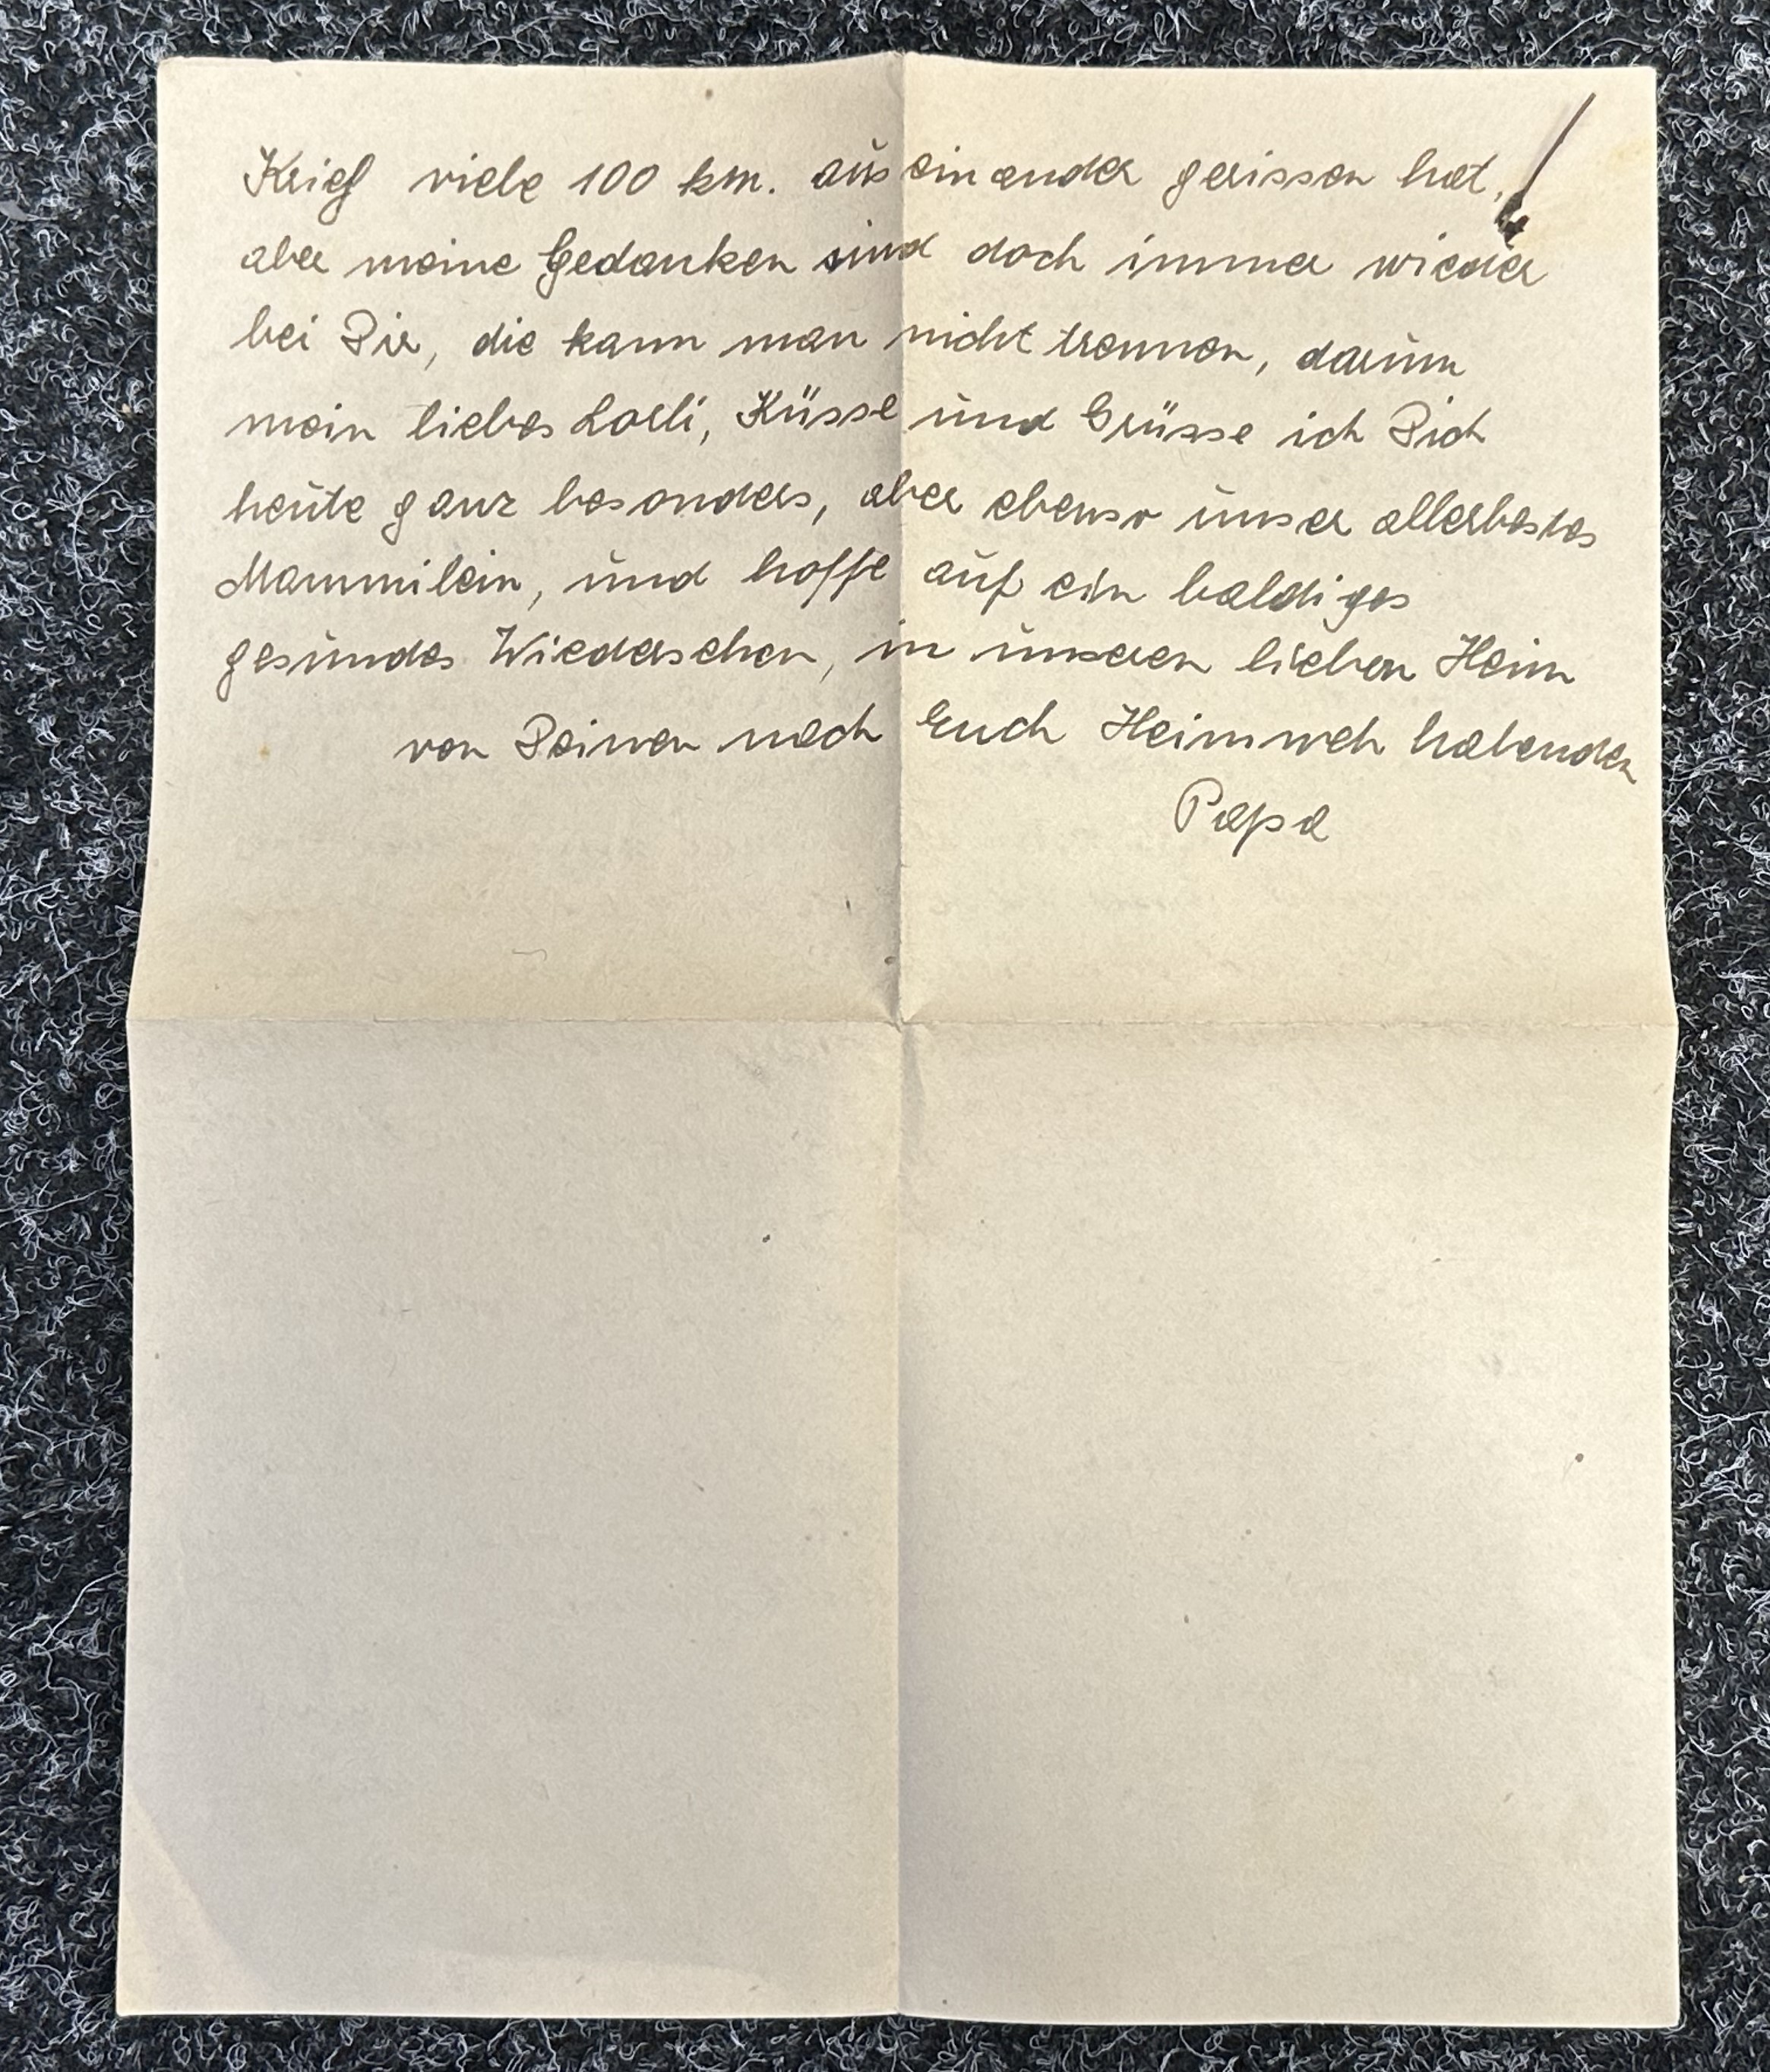 Krieg viele 100 km. auseinander gerissen hat,
aber meine Gedanken sind doch immer wieder
bei Dir, die kann man nicht trennen, darum
mein liebes Lorli, Küsse und Grüsse ich Dich
heute ganz besonders, aber ebenso unser allerbestes
Mammilein, und hoffe auf ein baldiges
gesundes Wiedersehen, in unseren lieben Heim
von Deinen nach Euch Heimweh habenden
Papa